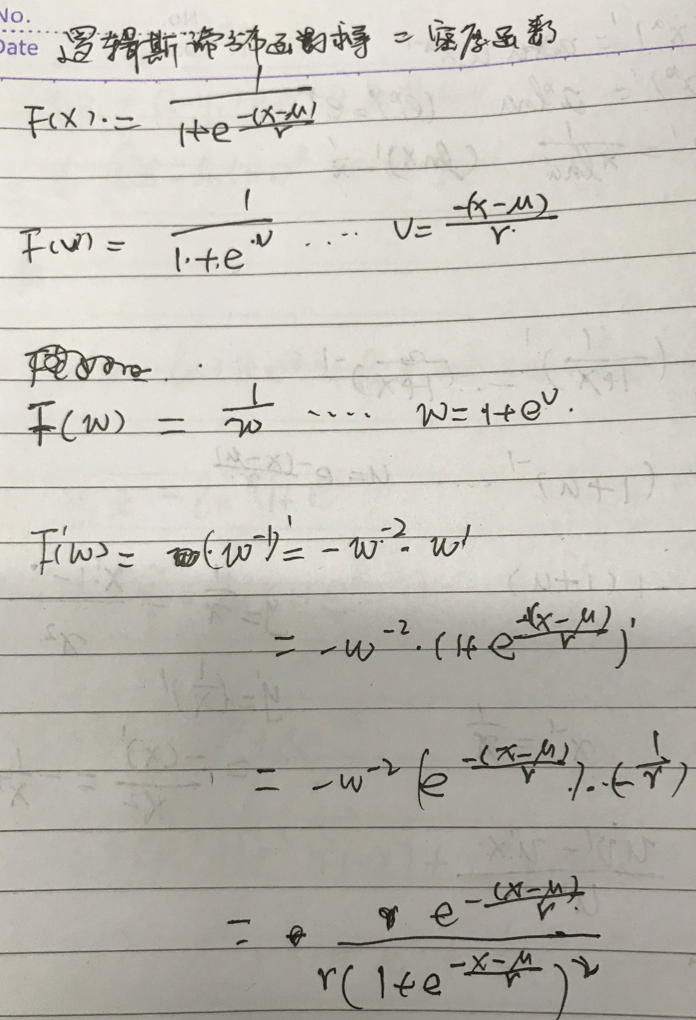 No.
Date 逻辑斯谛分布函数求导 = 密度函数
F(x) = \frac{1}{1+e^{\frac{-(x-μ)}{r}}}
F(v) = \frac{1}{1+e^{v}} .... v = \frac{-(x-μ)}{r}
F(w) = \frac{1}{w} .... w = 1+e^{v}.
F'(w) = (w^{-1})' = -w^{-2} · w'
= -w^{-2} · (1+e^{\frac{-(x-μ)}{r}})'
= -w^{-2} (e^{\frac{-(x-μ)}{r}}) · (-\frac{1}{r})
= \frac{e^{-\frac{(x-μ)}{r}}}{r(1+e^{-\frac{x-μ}{r}})^2}